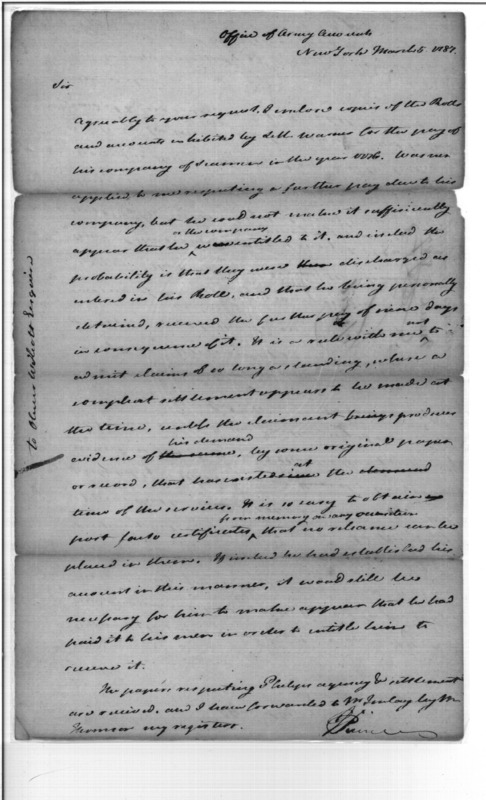 Office of Army Accounts
New York March 5 1787.
Sir
Agreeably to your request, I enclose copies of the Rolls
and accounts exhibited by Seth Warner for the pay of
his company of Seamen in the year 1776. Warner
applied to me respecting a further pay due to his
company, but he could not make it sufficiently
or the company
appear that he was entitled to it, and indeed the
probability is that they were discharged as
entered in his Roll, and that he being personally
detained, received the further pay of nine days
in consequence of it. It is a rule with me, not to
admit claims of so long a standing, where a
compleat settlement appears to be made at
the time, unless the claimant produces
his demand
evidence of the same, by some original paper
or record, that has existed at the
time of the services. It is so easy to obtain ex
from memory on any occasion
post facto certificates, that no reliance can be
placed in them. If indeed he had established his
account in this manner, it would still be
necessary for him to make appear that he had
paid it to his men in order to entitle him to
receive it.
The papers respecting Phelps agency & settlement
are received, and I have forwarded to Mr Imlay by Mr
Thomson my register.
to Oliver Wolcott Esquire